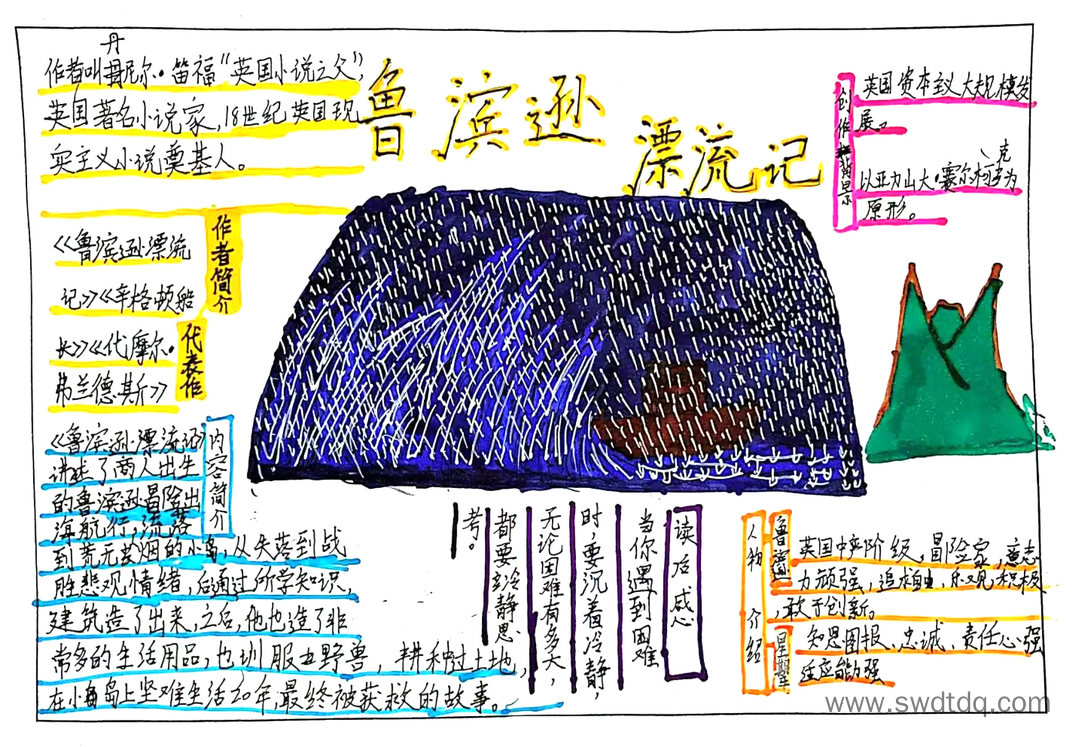 鲁滨逊
漂流记
丹
作者叫丹尼尔·笛福“英国小说之父”,
英国著名小说家,18世纪英国现
实主义小说奠基人。
作者简介
《鲁滨逊漂流
记》《辛格顿船
长》《代摩尔·
弗兰德斯》
代表作
内容简介
《鲁滨逊漂流记》
讲述了商人出生
的鲁滨逊冒险出
海航行,流落
到荒无人烟的小岛,从失落到战
胜悲观情绪,后通过所学知识,
建筑造了出来,之后,他也造了非
常多的生活用品,也训服丑野兽,耕种过土地,
在小岛上坚难生活20年,最终被获救的故事。
创作背景
英国资本主义大规模发
展。
克
以亚力山大·赛尔柯为
原形。
读后感
当你遇到困难
时,要沉着冷静,
无论困难有多大,
都要冷静思
考。
人物介绍
鲁滨逊
英国中产阶级,冒险家,意志
力顽强,追求自由,乐观,积极
,敢于创新。
星期
知恩图报、忠诚、责任心强
适应能力强
www.swdtdq.com